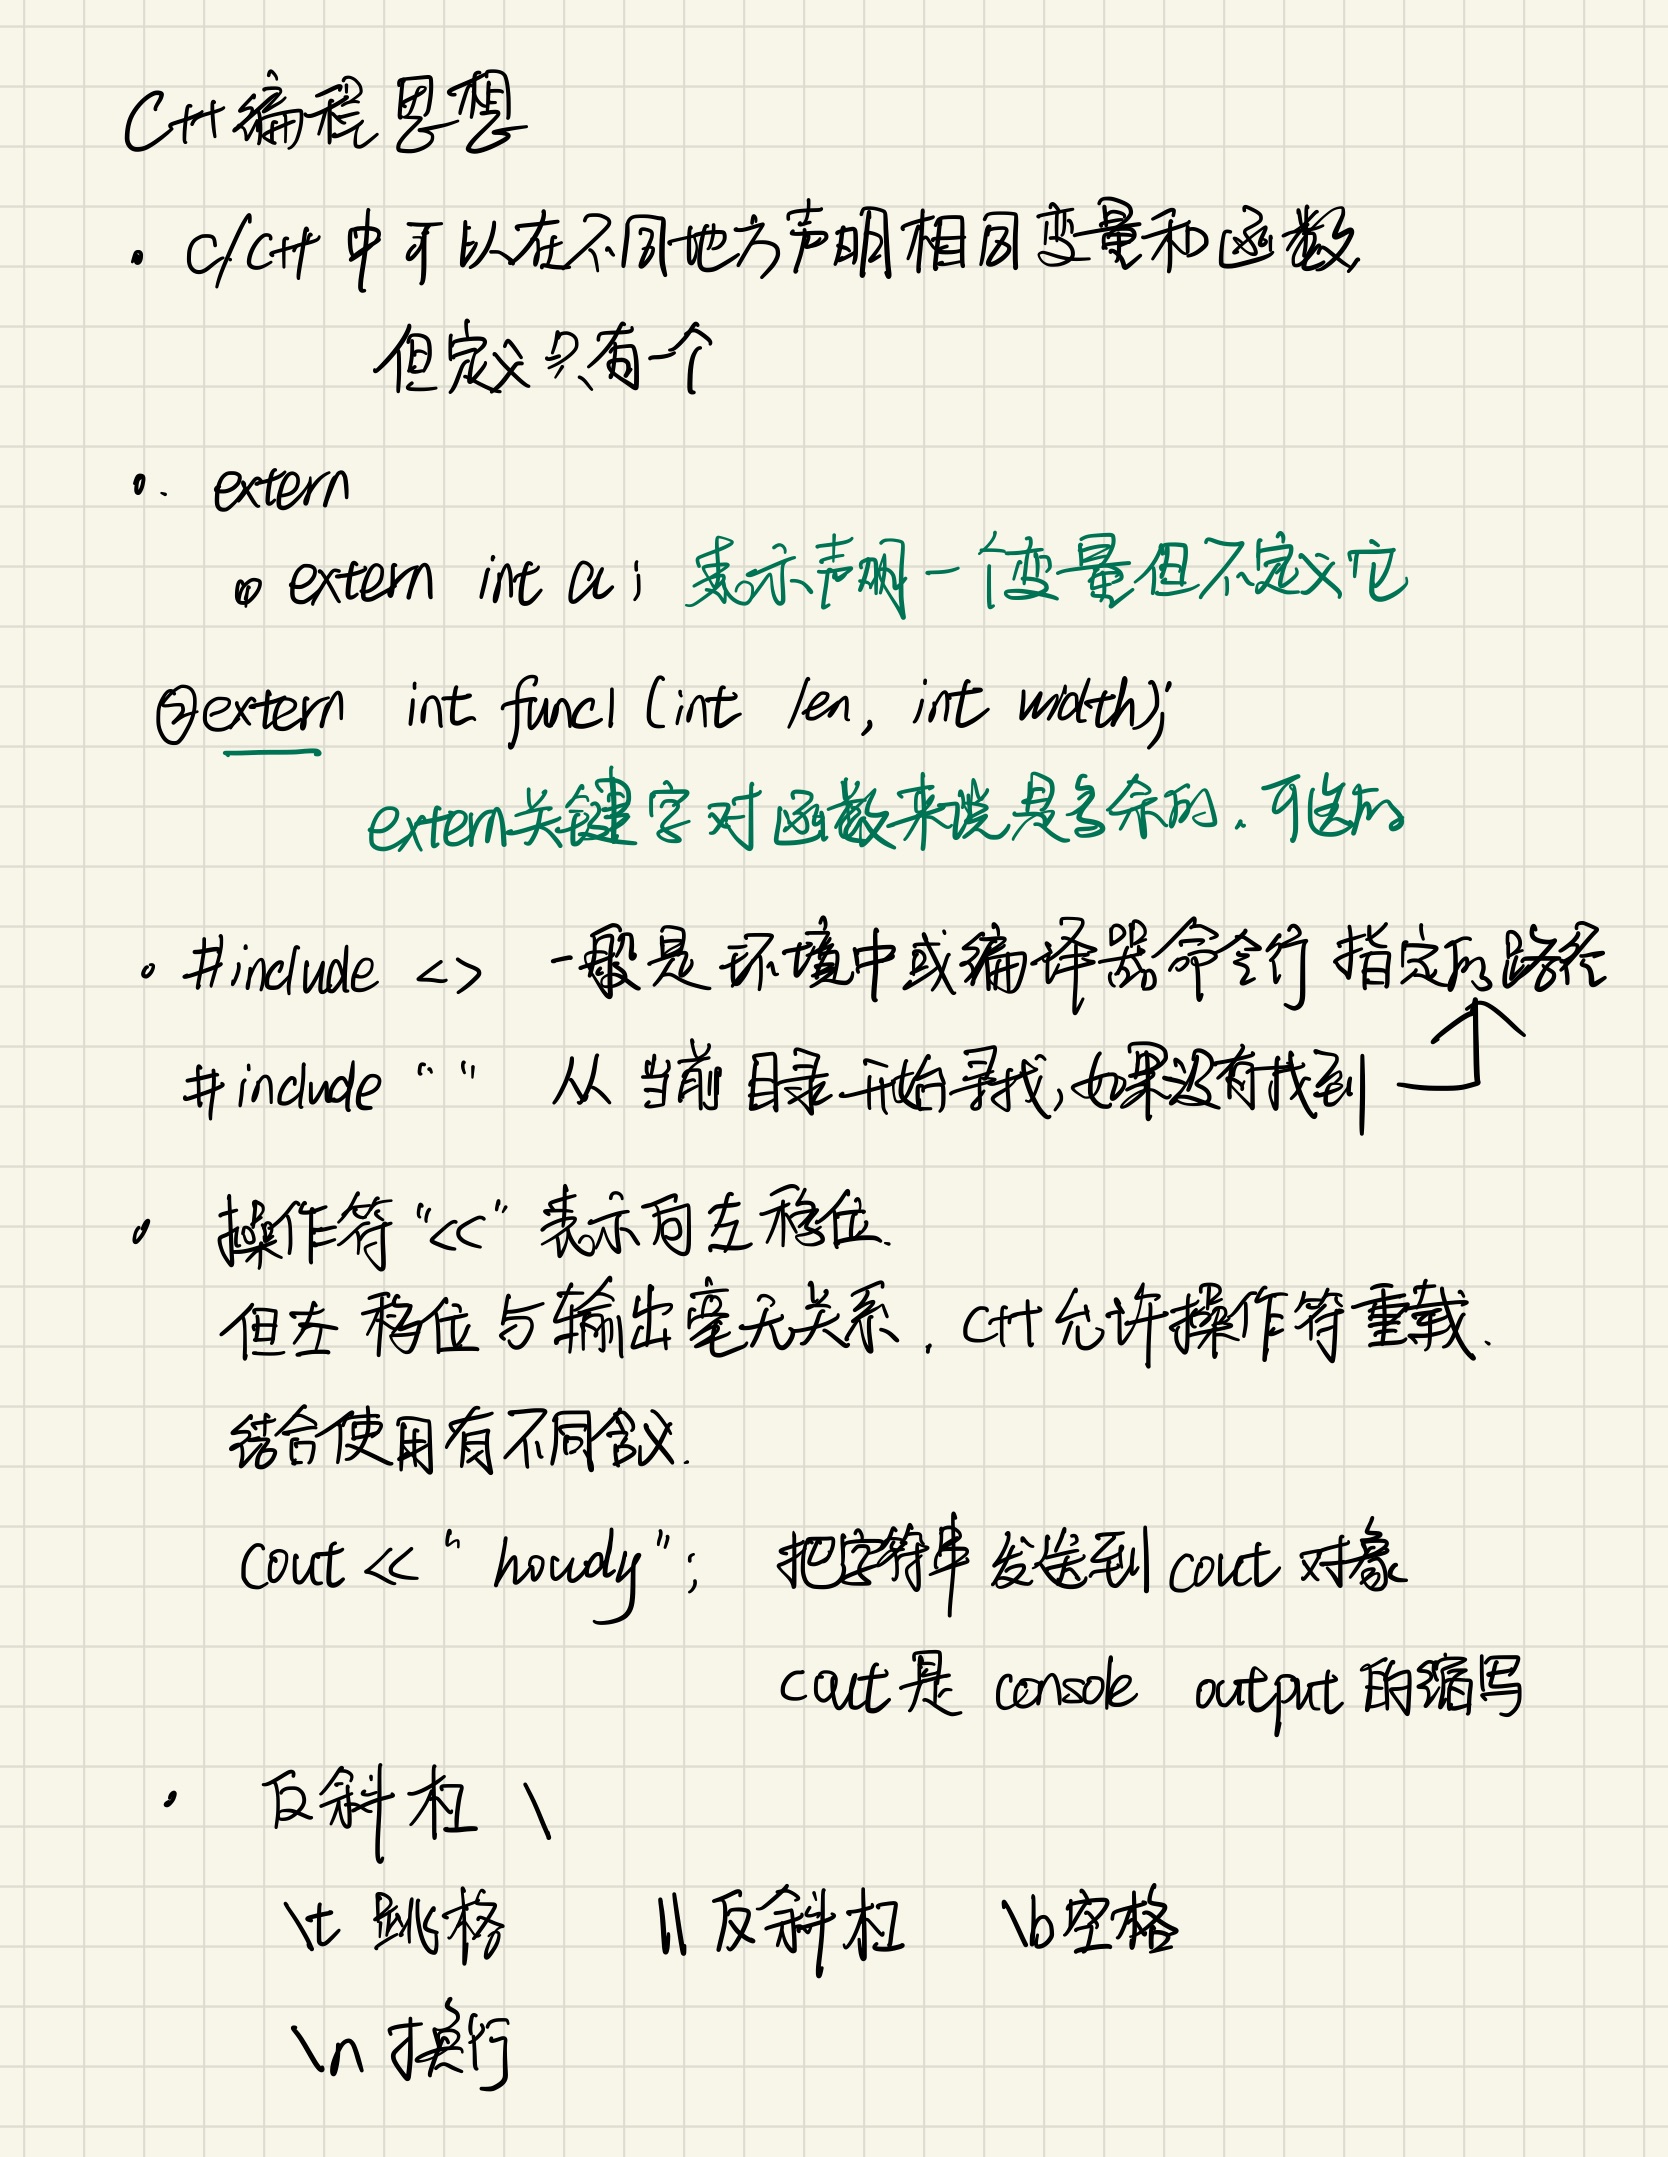 C++编程思想
· C/C++ 中可以在不同地方声明相同变量和函数
但定义只有一个
· extern
① extern int a; 表示声明一个变量但不定义它
②extern int func1 (int len, int width);
extern关键字对函数来说是多余的、可选的
· #include <> 一般是环境中或编译器命令行指定的路径
#include "" 从当前目录开始寻找,如果没有找到
· 操作符"<<"表示向左移位.
但左移位与输出毫无关系. C++允许操作符重载.
结合使用有不同含义.
cout << "howdy"; 把字符串发送到cout对象
cout是 console output的缩写
· 反斜杠 \
\t 跳格 \\ 反斜杠 \b空格
\n 换行